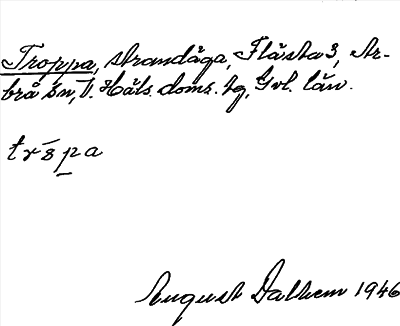 Troppa, strandäga, Flästa 3, Ar-
brå sn, V. Häls. doms. tg, Gvl. län.
trŏpa
August Dalhem 1946